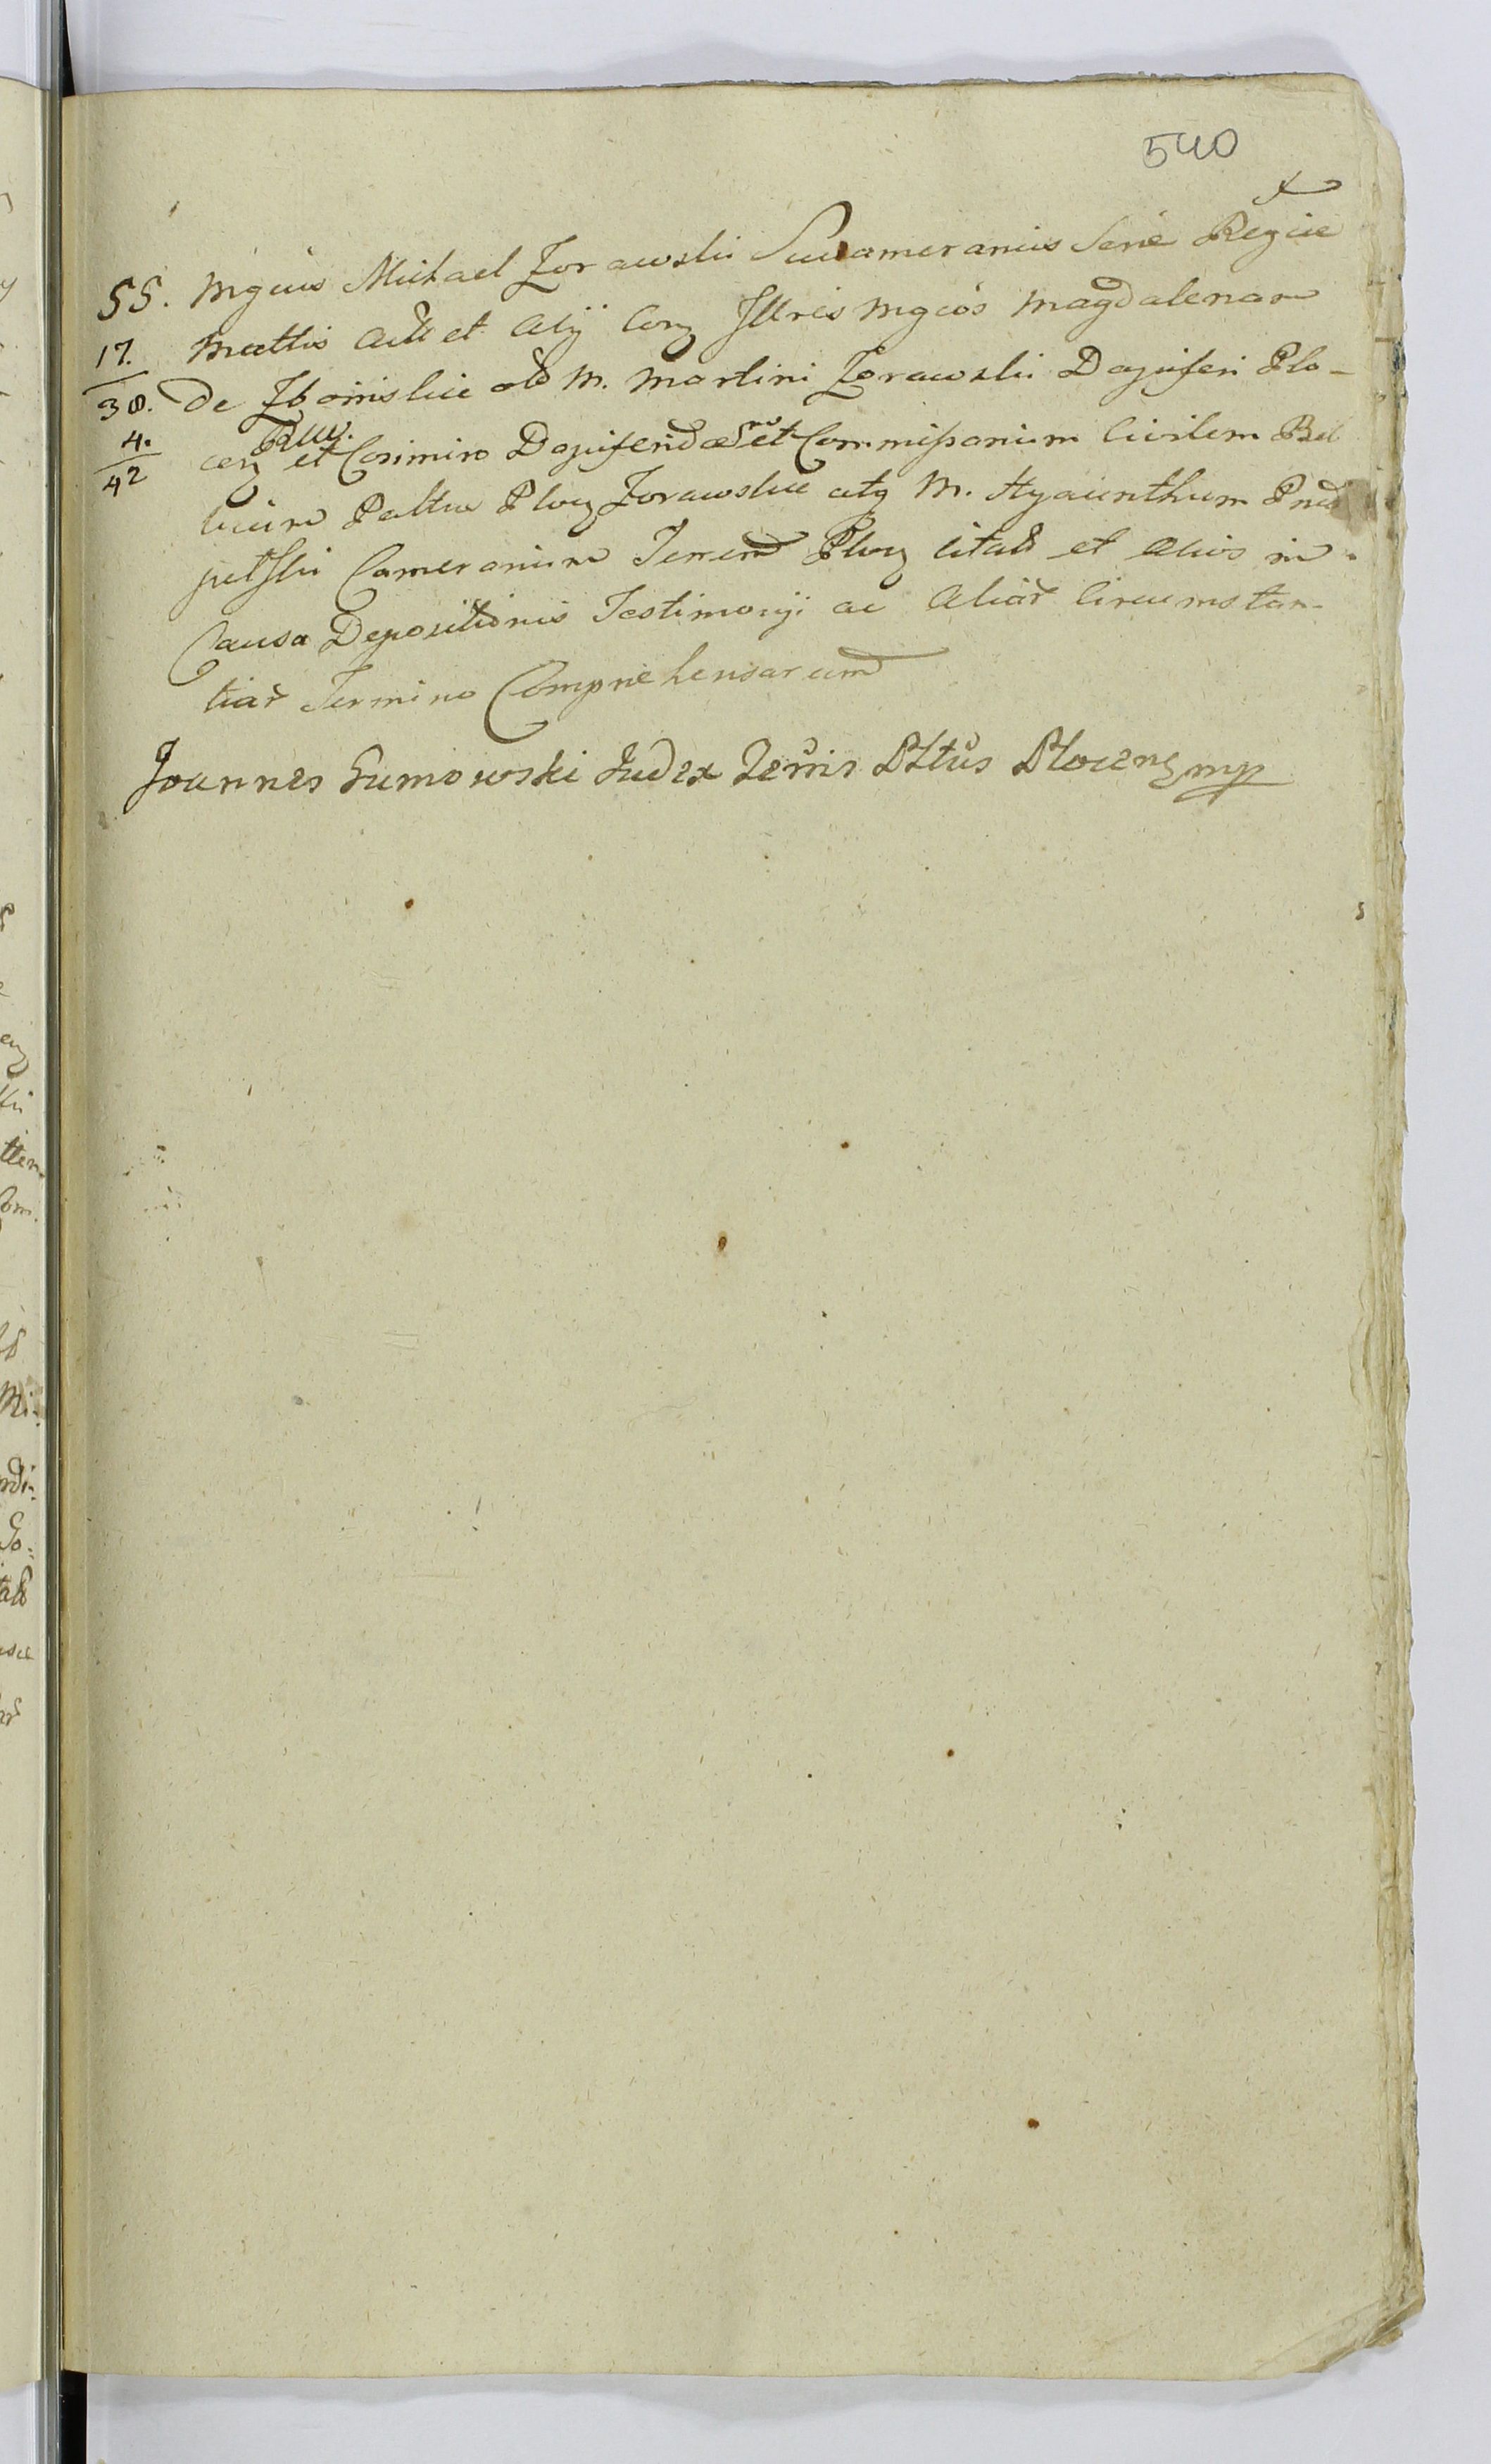 540
55. Mgcus Michael Zorawski Succamerarius Serē Regiæ
17. Mattis Act et Alÿ Corz Illres Mgcos Magdalenam
38. de Zboinskie olo M. Martini Zorawski Dapiferi Plo-
4. cenz et Casimiro Dapiferidæ et Commissarium Civilem Bel
42
licum Paltus Plocz Zorawskie atq M. Hyacinthum
Camerarium Terren Plocz citat et Alios in
Causa Depositionis Testimonÿ ac Aliar Circumstan-
tiar Termino Comprehensarum
Joannes Sumowski Judex Terris Pltus Plocenz mp